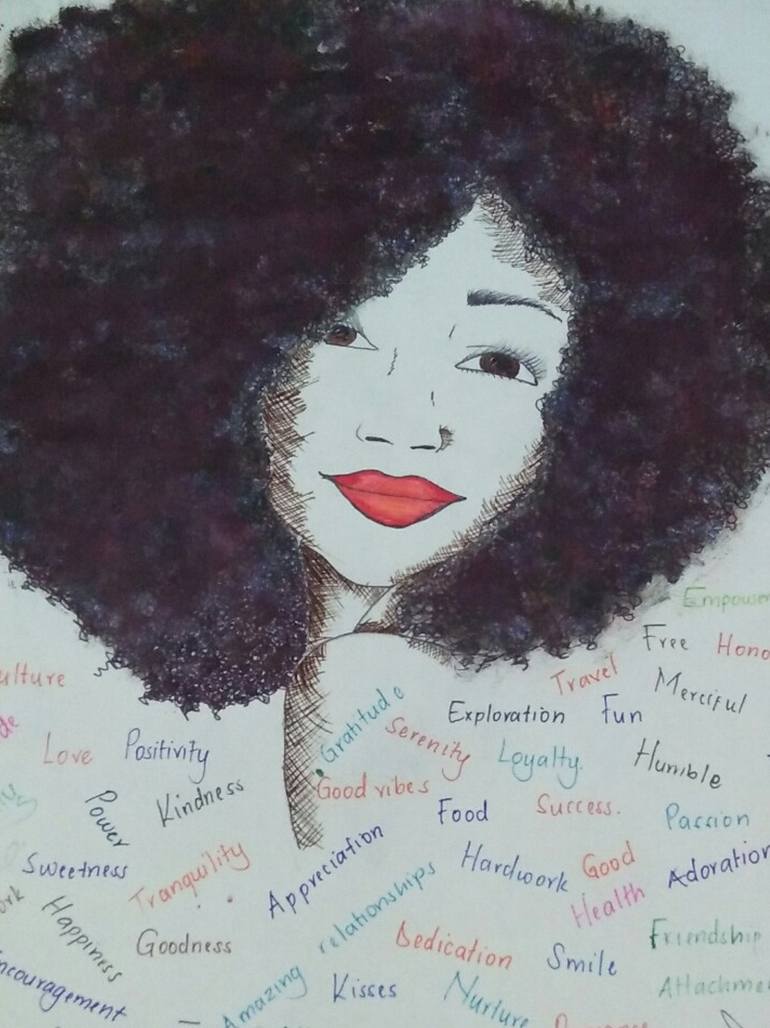 Empower
Free
Hono
ulture
Travel
Merciful
de
Gratitude
Exploration
Fun
Love
Positivity
Serenity
Loyalty.
Humble
Power
Kindness
Good vibes
Food
Success.
Passion
Sweetness
Tranquility
Appreciation
Hardwork
Good
Health
Adoration
ork
Happiness
Goodness
Amazing relationships
Dedication
Smile
Friendship
ncouragement
Kisses
Nurture
Attachme